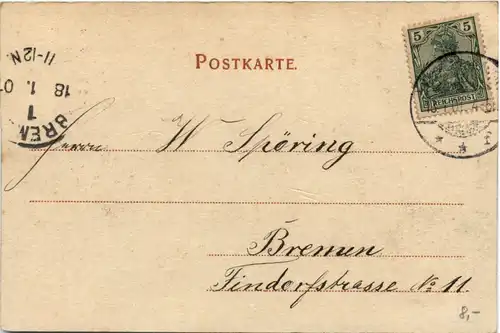 POSTKARTE.
5
REICHSPOST
11-12N
18.1.0
1
BREM
Herrn W Spöring
Bremen
Findorfstrasse No 11
8,-